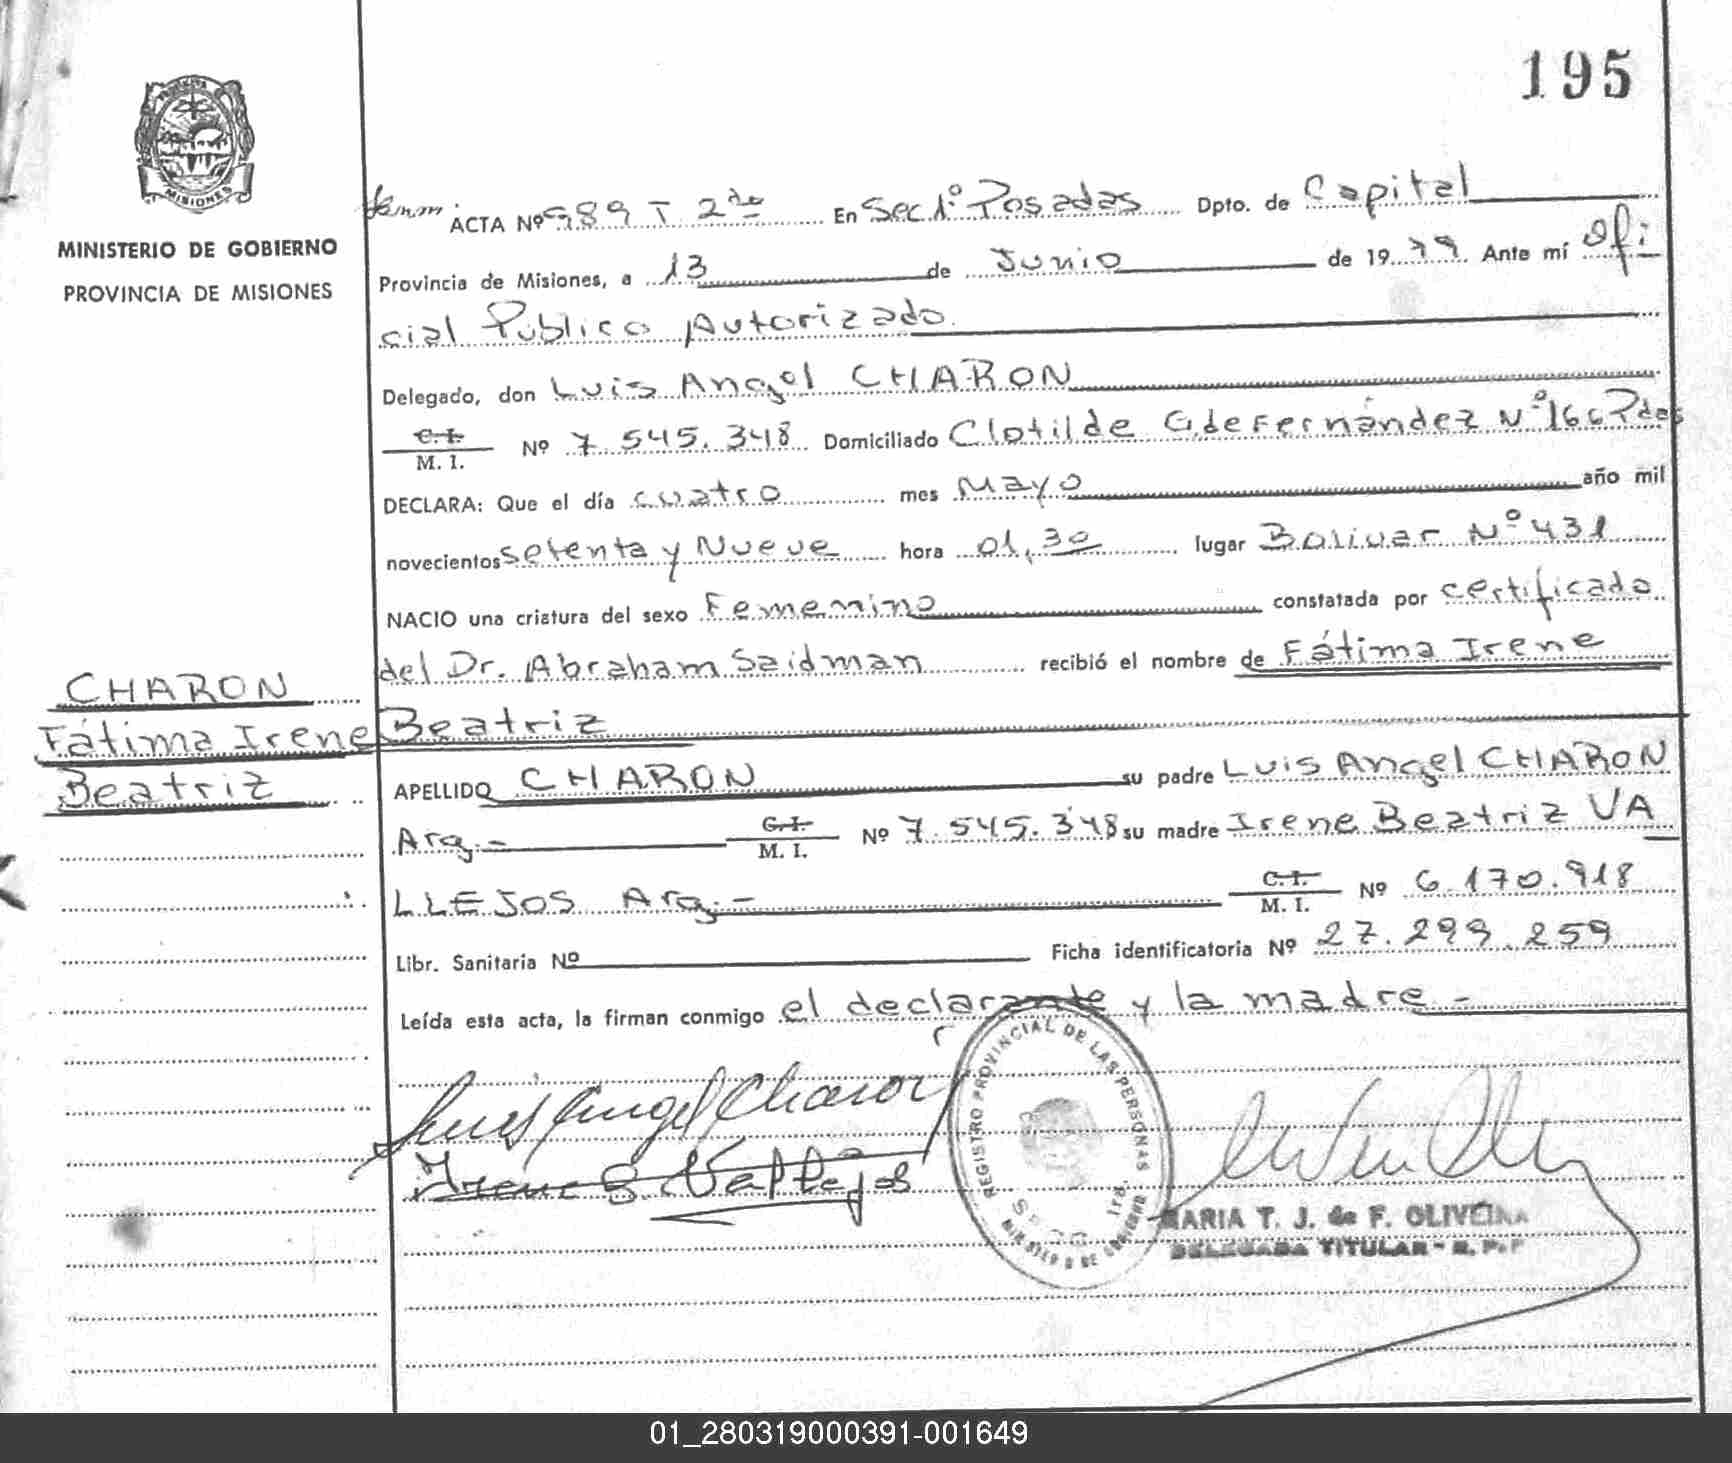 195
MISIONES
MINISTERIO DE GOBIERNO
PROVINCIA DE MISIONES
ACTA Nº 989 T 2do En Sec 1º Posadas Dpto. de Capital
Provincia de Misiones, a 13 de Junio de 1979 Ante mí Ofi
cial Publico Autorizado.
Delegado, don Luis Angel CHARON
C. I. M. I. Nº 7 545.348 Domiciliado Clotilde G. de Fernández Nº 166 Pdas
DECLARA: Que el día cuatro mes Mayo año mil
novecientos setenta y Nueve hora 01,30 lugar Bolivar Nº 431
NACIO una criatura del sexo Femenino constatada por certificado
del Dr. Abraham Saidman recibió el nombre de Fátima Irene
Beatriz
CHARON
Fátima Irene
Beatriz
APELLIDO CHARON su padre Luis Angel CHARON
Arg.- C. I. M. I. Nº 7.545.348 su madre Irene Beatriz VA
LLEJOS Arg.- C. I. M. I. Nº 6.170.918
Libr. Sanitaria Nº Ficha identificatoria Nº 27.299.259
Leída esta acta, la firman conmigo el declarante y la madre -
Luis Angel Charon
Irene B. Vallejos
REGISTRO PROVINCIAL DE LAS PERSONAS
MINISTERIO DE GOBIERNO
MARIA T. J. de F. OLIVEIRA
DELEGADA TITULAR - R. P. P
01_280319000391-001649